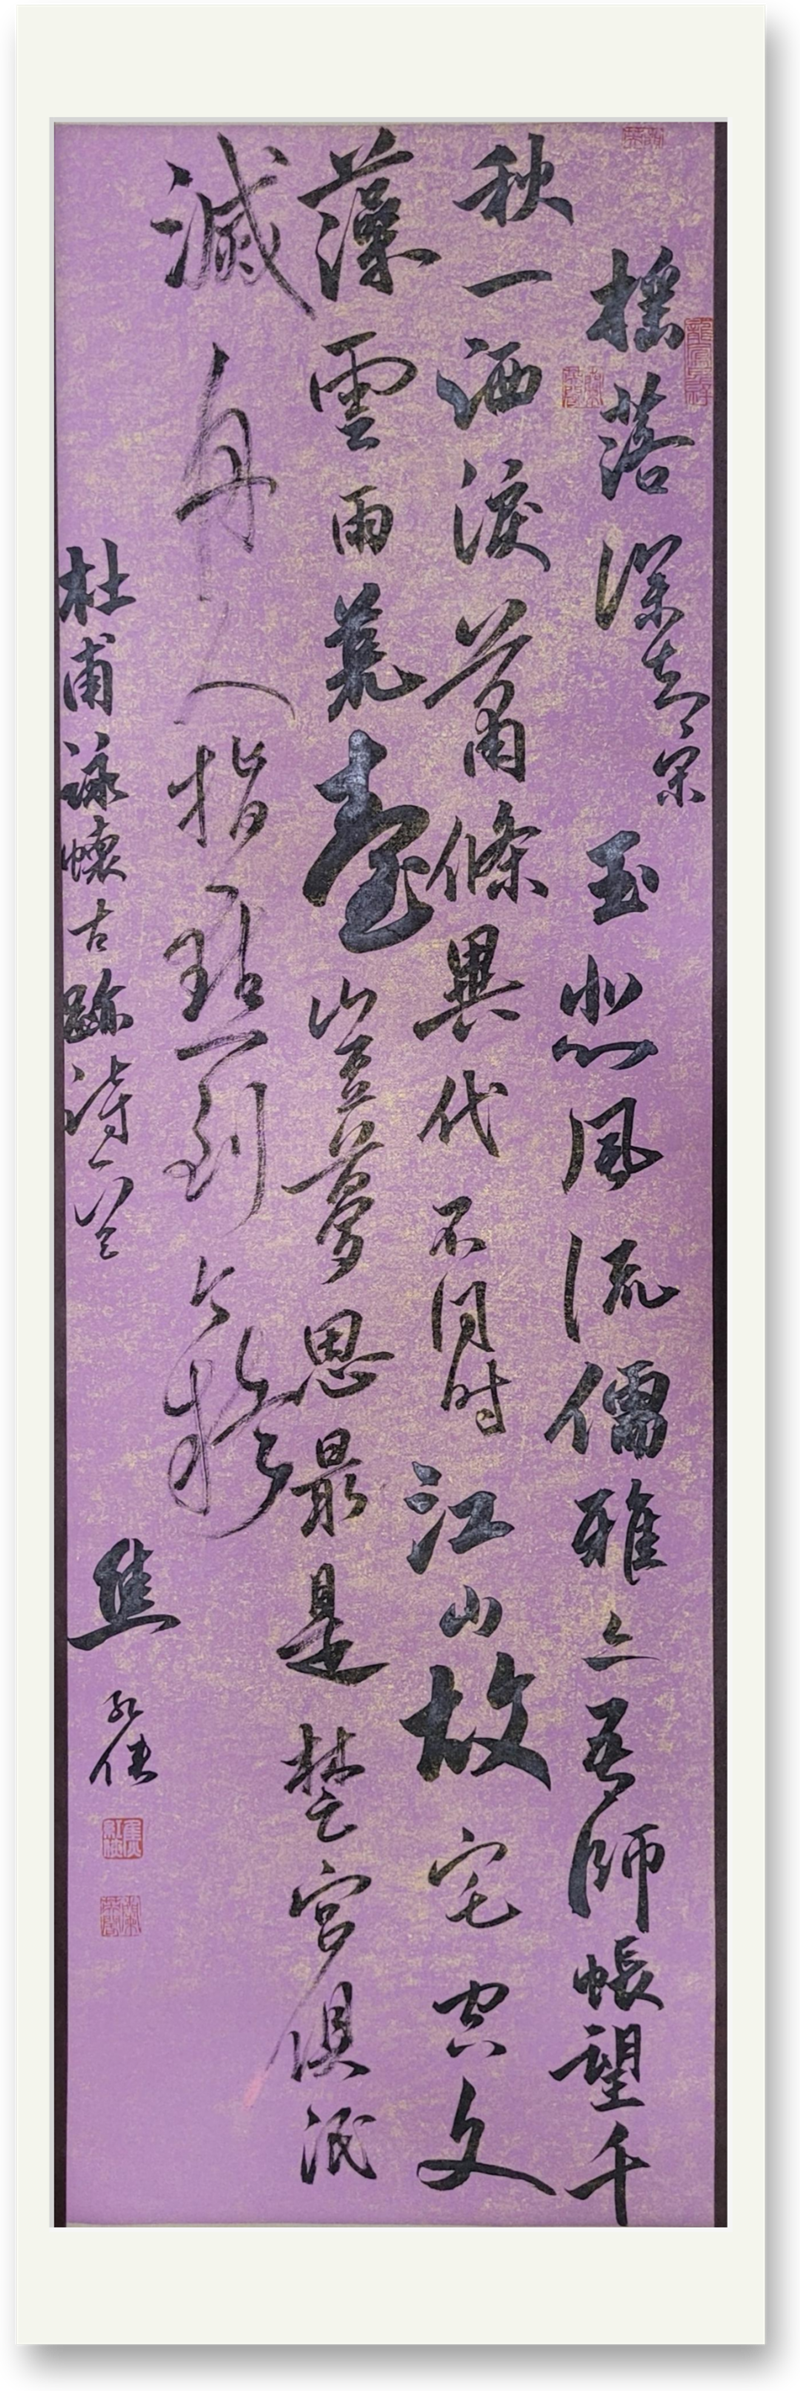 摇落深知宋玉悲風流儒雅亦吾師悵望千
秋一洒淚蕭條異代不同时江山故宅空文
藻雲雨荒臺豈夢思最是楚宮俱泯
滅舟人指點到今疑
杜甫詠懷古跡詩一首
焦